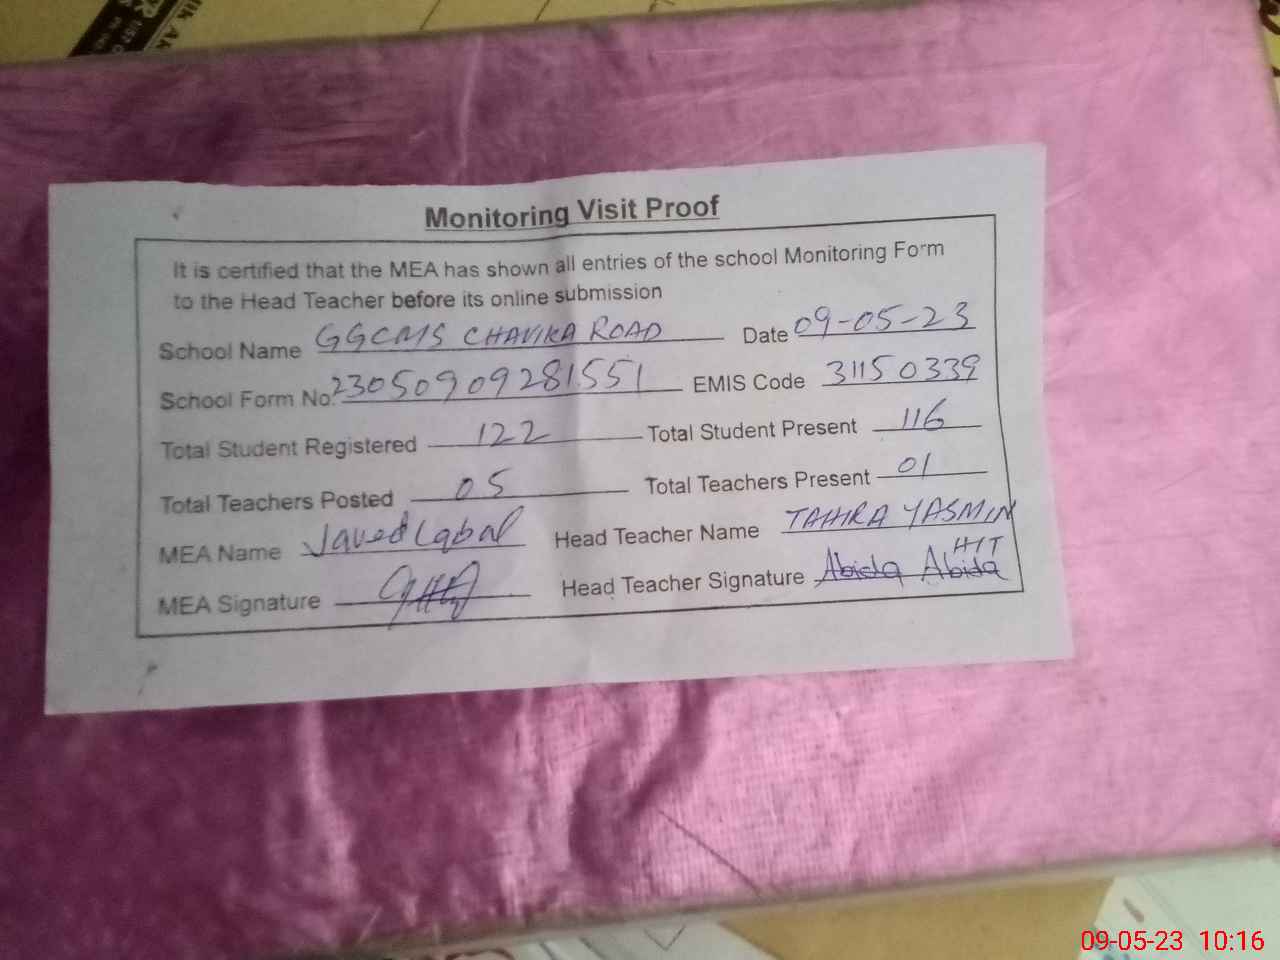 Monitoring Visit Proof
It is certified that the MEA has shown all entries of the school Monitoring Form
to the Head Teacher before its online submission
School Name GGCMS CHAVIKA ROAD Date 09-05-23
School Form No. 23050909281551 EMIS Code 31150339
Total Student Registered 122 Total Student Present 116
Total Teachers Posted 05 Total Teachers Present 01
MEA Name Javed Iqbal Head Teacher Name TAHIRA YASMIN
H/T
MEA Signature Head Teacher Signature Abida Abida
09-05-23 10:16